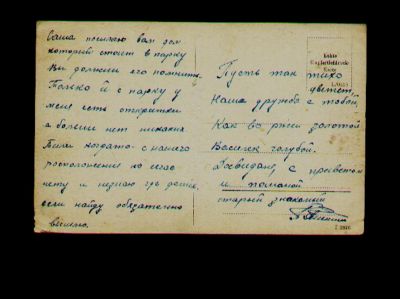 Саша посылаю вам дом
который стоит в парку
Вы должны его помнить.
Только и с парку у
меня есть открытки
а больши нет никаких
Были когдато с нашего
росположения но сечас
нету и незнаю где
если найду обязательно
вышлю.
Echte
Photographie
Пусть так тихо
цветет,
Наша дружба с тобой,
Как во ржи золотой
Василек голубой.
Досвидане, с приветом
и
старый знакомый